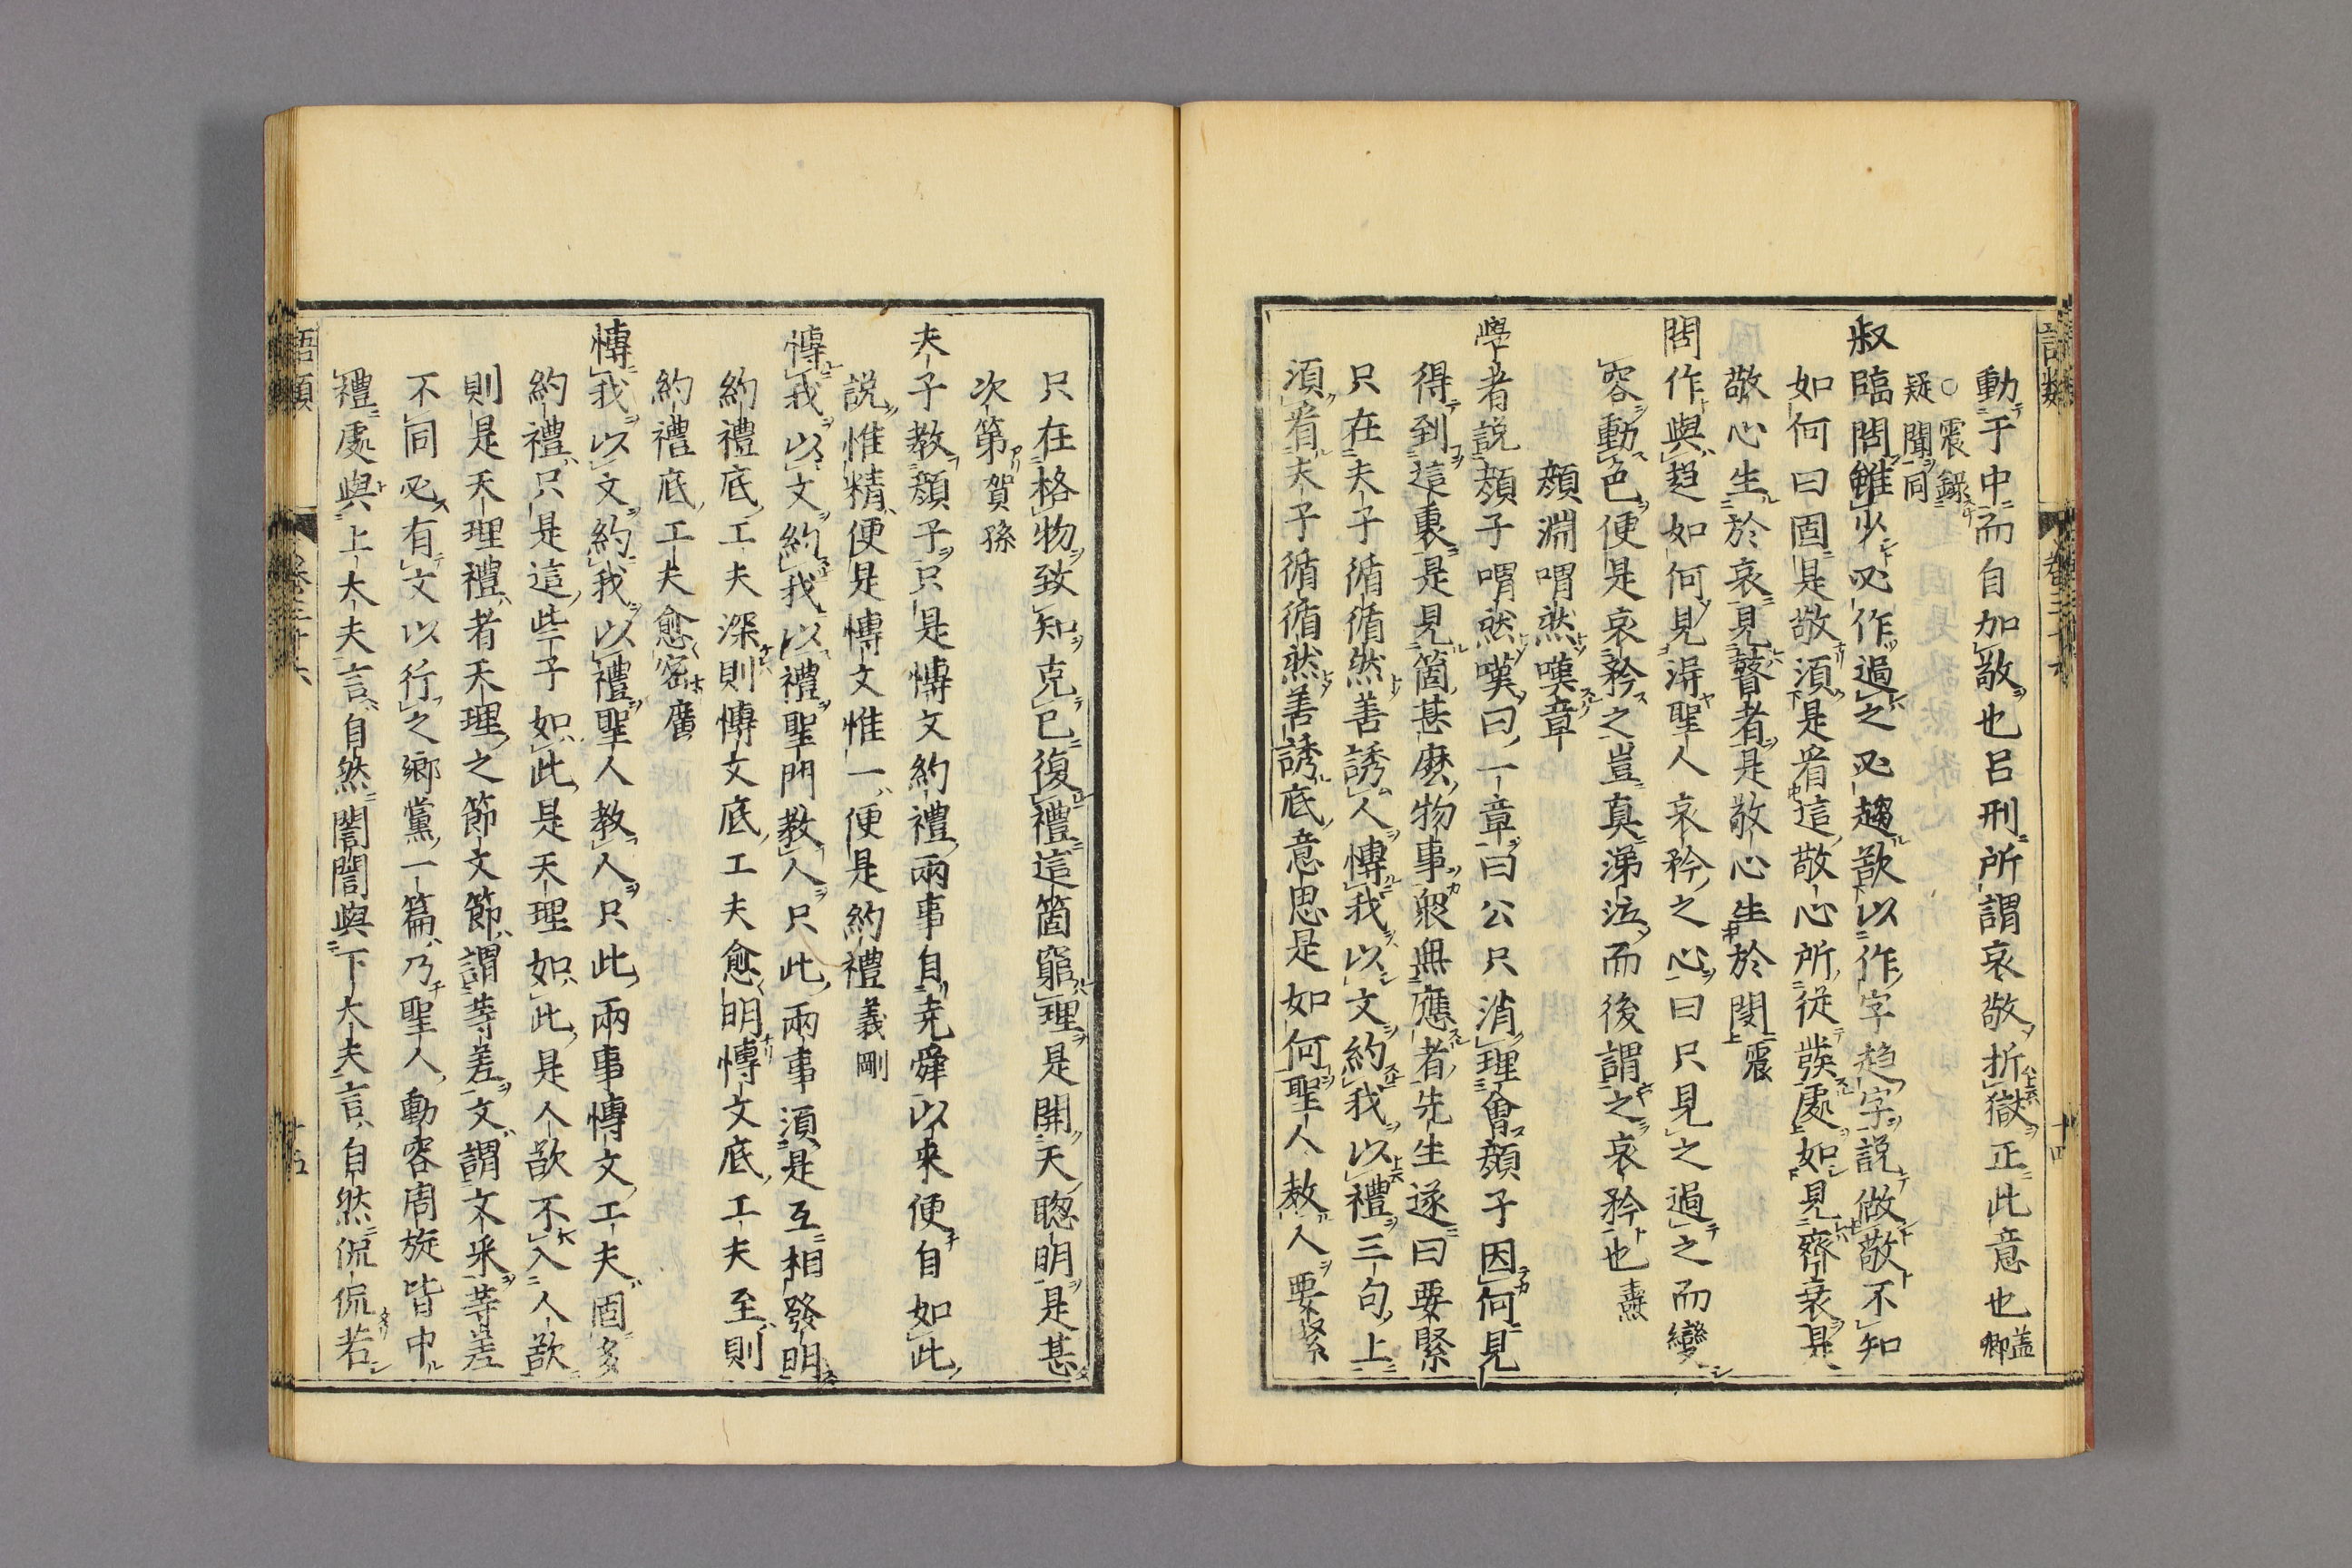 動于中而自加敬也呂刑所謂哀敬折獄正此意也蓋卿
○震錄
疑聞同
叔臨問雖少必作過之必趨欲以作字趨字說做敬不知
如何曰固是敬須是看這敬心所從發處如見齊衰是
敬心生於哀見瞽者是敬心生於閔震
問作與趨如何見得聖人哀矜之心曰只見之過之而變
容動色便是哀矜之豈真涕泣而後謂之哀矜也燾
顏淵喟然嘆章
學者說顏子喟然嘆曰一章曰公只消理會顏子因何見
得到這裏是見箇甚麽物事衆無應者先生遂曰要緊
只在夫子循循然善誘人博我以文約我以禮三句上
須看夫子循循然善誘底意思是如何聖人教人要緊
只在格物致知克己復禮這箇窮理是開天聰明是甚
次第賀孫
夫子教顏子只是博文約禮兩事自堯舜以來便自如此
說惟精便是博文惟一便是約禮義剛
博我以文約我以禮聖門教人只此兩事須是互相發明
約禮底工夫深則博文底工夫愈明博文底工夫至則
約禮底工夫愈密廣
博我以文約我以禮聖人教人只此兩事博文工夫固多
約禮只是這些子如此是天理如此是人欲不入人欲
則是天理禮者天理之節文節謂等差文謂文采等差
不同必有文以行之鄉黨一篇乃聖人動容周旋皆中
禮處與上大夫言自然誾誾與下大夫言自然侃侃若
語類
卷三十六
十五